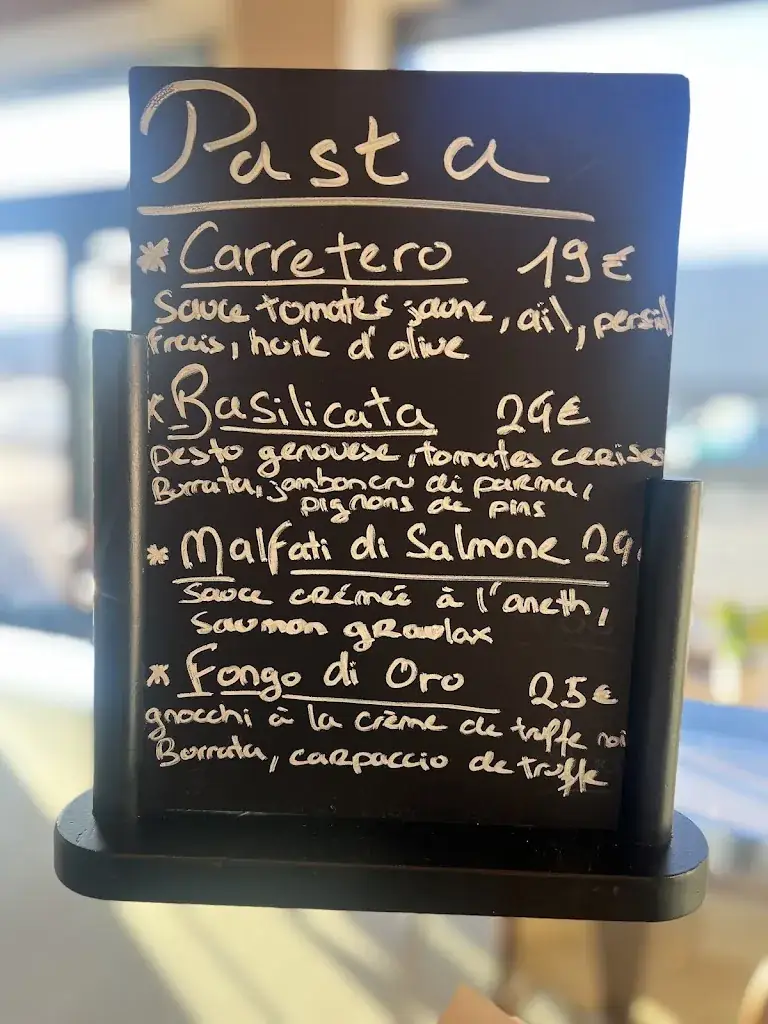 Pasta
* Carretero 19€
Sauce tomates jaune, ail, persil
frais, huile d'olive
* Basilicata 24€
pesto genovese, tomates cerises
Burrata, jambon cru di parma,
pignons de pins
* Malfati di Salmone 24
Sauce crémée à l'aneth,
Saumon gravlax
* Fongo di Oro 25€
gnocchi à la crème de truffe noi
Burrata, carpaccio de truffe